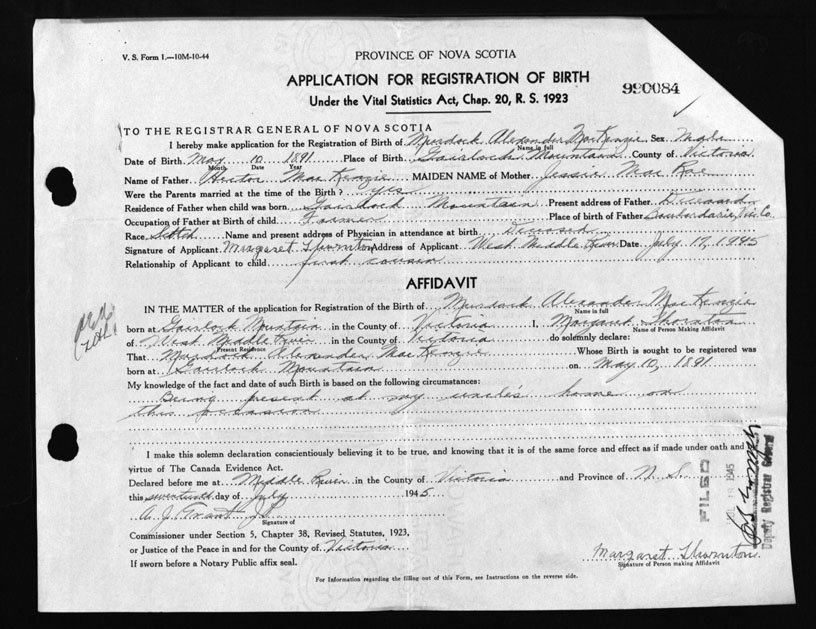 V. S. Form 1.—10M-10-44
PROVINCE OF NOVA SCOTIA
APPLICATION FOR REGISTRATION OF BIRTH
990084
Under the Vital Statistics Act, Chap. 20, R. S. 1923
TO THE REGISTRAR GENERAL OF NOVA SCOTIA
I hereby make application for the Registration of Birth of Murdock Alexander MacKenzie Sex Male
Name in full
Date of Birth May 10 1891 Place of Birth Gairloch Mountain County of Victoria
Month Date Year
Name of Father Hector MacKenzie MAIDEN NAME of Mother Jessie MacRae
Were the Parents married at the time of the Birth? yes
Residence of Father when child was born Gairlock Mountain Present address of Father Deceased
Occupation of Father at Birth of child Farmer Place of birth of Father Boulardarie, Vic. Co.
Race Scotch Name and present address of Physician in attendance at birth Deceased
Signature of Applicant Margaret Thornton Address of Applicant West Middle River Date July 17, 1945
Relationship of Applicant to child first cousin
AFFIDAVIT
IN THE MATTER of the application for Registration of the Birth of Murdock Alexander MacKenzie
Name in full
born at Gairlock Mountain in the County of Victoria I, Margaret Thornton
Name of Person making Affidavit
of West Middle River in the County of Victoria do solemnly declare:
Present Residence
That Murdock Alexander MacKenzie Whose Birth is sought to be registered was
born at Gairlock Mountain on May 10, 1891
My knowledge of the fact and date of such Birth is based on the following circumstances:
Being present at my uncle's home on
this occasion
I make this solemn declaration conscientiously believing it to be true, and knowing that it is of the same force and effect as if made under oath and by
virtue of The Canada Evidence Act.
Declared before me at Middle River in the County of Victoria and Province of N. S.
this seventeenth day of July 1945
A. J. Grant J.P.
Signature of
Commissioner under Section 5, Chapter 38, Revised Statutes, 1923,
or Justice of the Peace in and for the County of Victoria
If sworn before a Notary Public affix seal.
Margaret Thornton
Signature of Person making Affidavit
For Information regarding the filling out of this Form, see Instructions on the reverse side.
FILED
1945
Deputy Registrar General